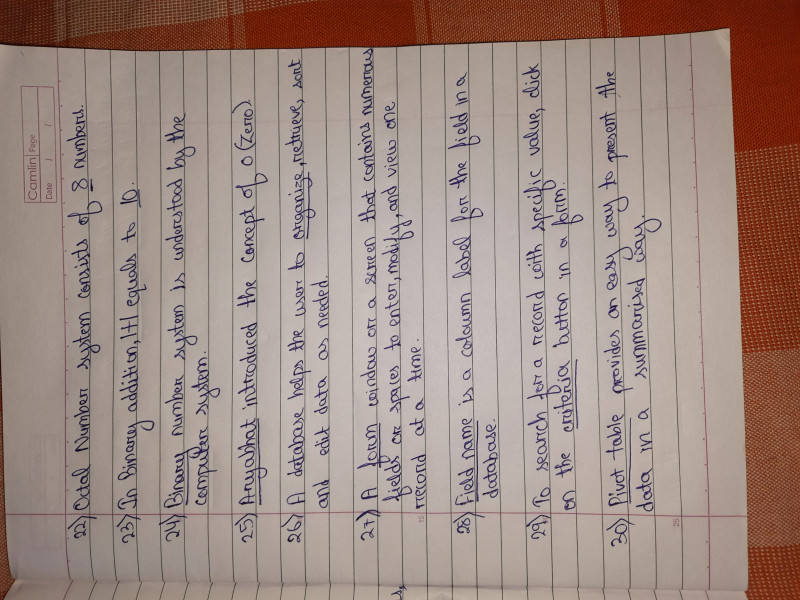 Camlin Page
Date / /
22) Octal Number system consists of 8 numbers.
23) In Binary addition, 1+1 equals to 10.
24) Binary number system is understood by the
computer system.
25) Aryabhat introduced the concept of 0 (Zero)
26) A database helps the user to organize, retrieve, sort
and edit data as needed.
27) A form window or a screen that contains numerous
fields or spaces to enter, modify, and view one
record at a time.
28) Field name is a column label for the field in a
database.
29) To search for a record with specific value, click
on the criteria button in a form.
30) Pivot table provides an easy way to present the
data in a summarised way.
25